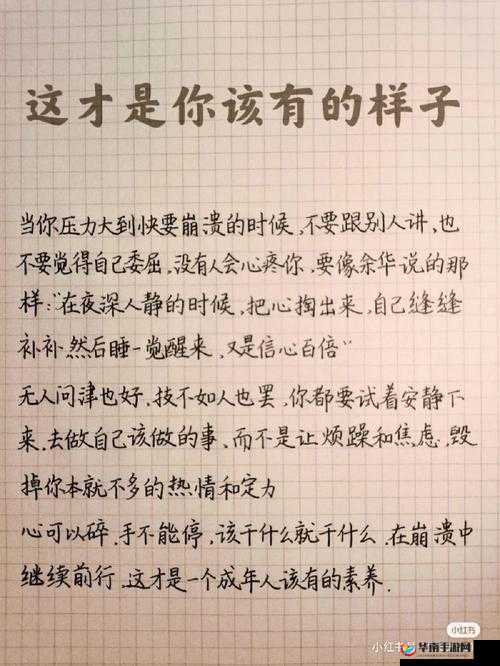 这才是你该有的样子
当你压力大到快要崩溃的时候，不要跟别人讲，也
不要觉得自己委屈，没有人会心疼你，要像余华说的那
样："在夜深人静的时候，把心掏出来，自己缝缝
补补，然后睡一觉醒来，又是信心百倍"
无人问津也好，技不如人也罢，你都要试着安静下
来，去做自己该做的事，而不是让烦躁和焦虑，毁
掉你本就不多的热情和定力
心可以碎，手不能停，该干什么就干什么，在崩溃中
继续前行，这才是一个成年人该有的素养．
小红书
小红书
华南手游网